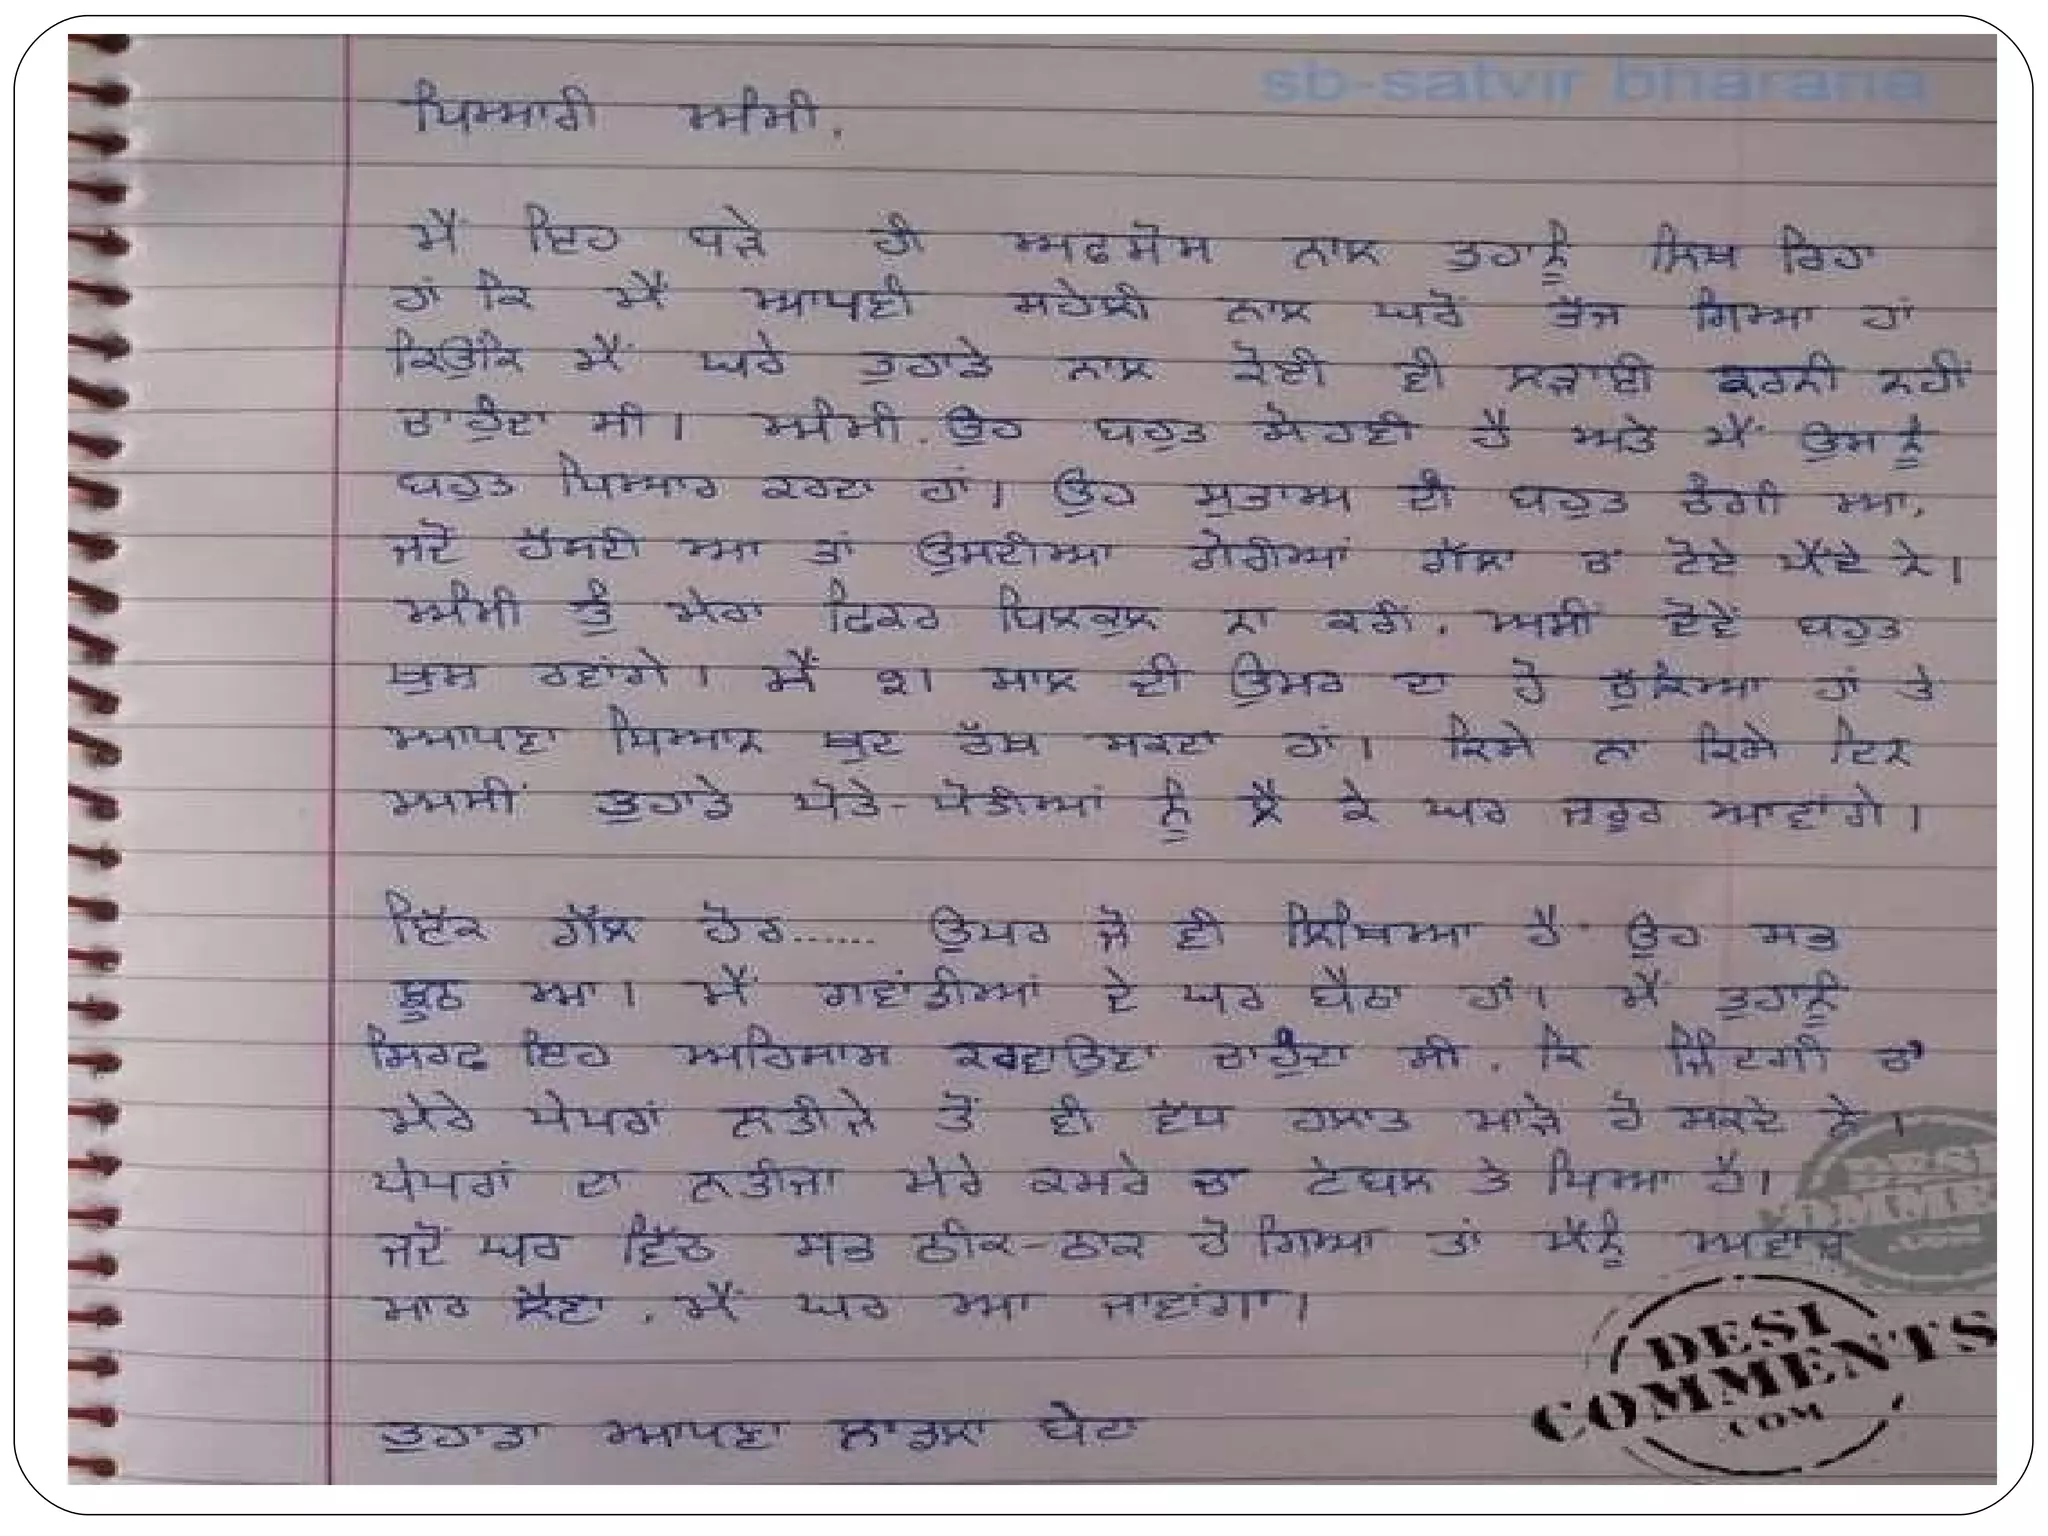 sb-satvir bharana
ਪਿਆਰੀ ਅੰਮੀ,
ਮੈਂ ਇਹ ਬੜੇ ਹੀ ਅਫਸੋਸ ਨਾਲ ਤੁਹਾਨੂੰ ਲਿਖ ਰਿਹਾ
ਹਾਂ ਕਿ ਮੈਂ ਆਪਣੀ ਸਹੇਲੀ ਨਾਲ ਘਰੋਂ ਭੱਜ ਗਿਆ ਹਾਂ
ਕਿਉਂਕਿ ਮੈਂ ਘਰੇ ਤੁਹਾਡੇ ਨਾਲ ਕੋਈ ਵੀ ਲੜਾਈ ਕਰਨੀ ਨਹੀਂ
ਚਾਹੁੰਦਾ ਸੀ। ਅੰਮੀ, ਉਹ ਬਹੁਤ ਸੋਹਣੀ ਹੈ ਅਤੇ ਮੈਂ ਉਸਨੂੰ
ਬਹੁਤ ਪਿਆਰ ਕਰਦਾ ਹਾਂ। ਉਹ ਸੁਭਾਅ ਦੀ ਬਹੁਤ ਚੰਗੀ ਆ,
ਜਦੋਂ ਹੱਸਦੀ ਆ ਤਾਂ ਉਸਦੀਆ ਗੋਰੀਆਂ ਗੱਲਾ ਚ' ਟੋਏ ਪੈਂਦੇ ਨੇ।
ਅੰਮੀ ਤੂੰ ਮੇਰਾ ਫਿਕਰ ਬਿਲਕੁਲ ਨਾ ਕਰੀਂ, ਅਸੀਂ ਦੋਵੇਂ ਬਹੁਤ
ਖੁਸ਼ ਰਵਾਂਗੇ। ਮੈਂ ੨੧ ਸਾਲ ਦੀ ਉਮਰ ਦਾ ਹੋ ਚੁੱਕਿਆ ਹਾਂ ਤੇ
ਆਪਣਾ ਖਿਆਲ ਖੁਦ ਰੱਖ ਸਕਦਾ ਹਾਂ। ਕਿਸੇ ਨਾ ਕਿਸੇ ਦਿਨ
ਅਸੀਂ ਤੁਹਾਡੇ ਪੋਤੇ-ਪੋਤੀਆਂ ਨੂੰ ਲੈ ਕੇ ਘਰ ਜ਼ਰੂਰ ਆਵਾਂਗੇ।
ਇੱਕ ਗੱਲ ਹੋਰ...... ਉਪਰ ਜੋ ਵੀ ਲਿਖਿਆ ਹੈ ਉਹ ਸਭ
ਝੂਠ ਆ। ਮੈਂ ਗਵਾਂਢੀਆਂ ਦੇ ਘਰ ਬੈਠਾ ਹਾਂ। ਮੈਂ ਤੁਹਾਨੂੰ
ਸਿਰਫ ਇਹ ਅਹਿਸਾਸ ਕਰਵਾਉਣਾ ਚਾਹੁੰਦਾ ਸੀ, ਕਿ ਜ਼ਿੰਦਗੀ ਚ'
ਮੇਰੇ ਪੇਪਰਾਂ ਨਤੀਜੇ ਤੋਂ ਵੀ ਵੱਧ ਹਲਾਤ ਮਾੜੇ ਹੋ ਸਕਦੇ ਨੇ।
ਪੇਪਰਾਂ ਦਾ ਨਤੀਜਾ ਮੇਰੇ ਕਮਰੇ ਚਾ ਟੇਬਲ ਤੇ ਪਿਆ ਹੈ।
ਜਦੋਂ ਘਰ ਵਿੱਚ ਸਭ ਠੀਕ-ਠਾਕ ਹੋ ਗਿਆ ਤਾਂ ਮੈਨੂੰ ਅਵਾਜ਼
ਮਾਰ ਲੈਣਾ, ਮੈਂ ਘਰ ਆ ਜਾਵਾਂਗਾ।
ਤੁਹਾਡਾ ਆਪਣਾ ਲਾਡਲਾ ਬੇਟਾ
DESI
COMMENTS
.COM